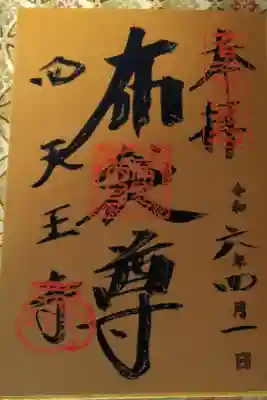 奉拝
令和六年四月一日
布袋尊
四天王寺